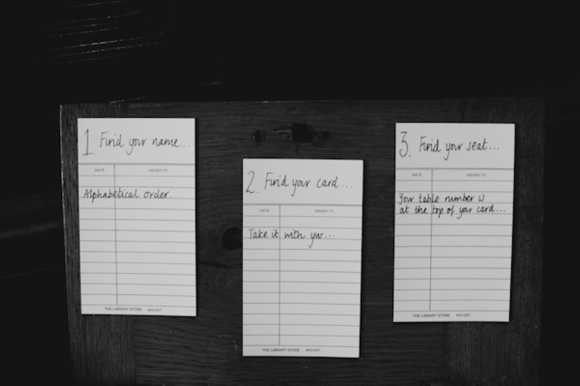 1 Find your name...
DATE ISSUED TO
Alphabetical order...
THE LIBRARY STORE
2. Find your card...
DATE ISSUED TO
Take it with you...
THE LIBRARY STORE
3. Find your seat...
DATE ISSUED TO
Your table number is
at the top of your card...
THE LIBRARY STORE